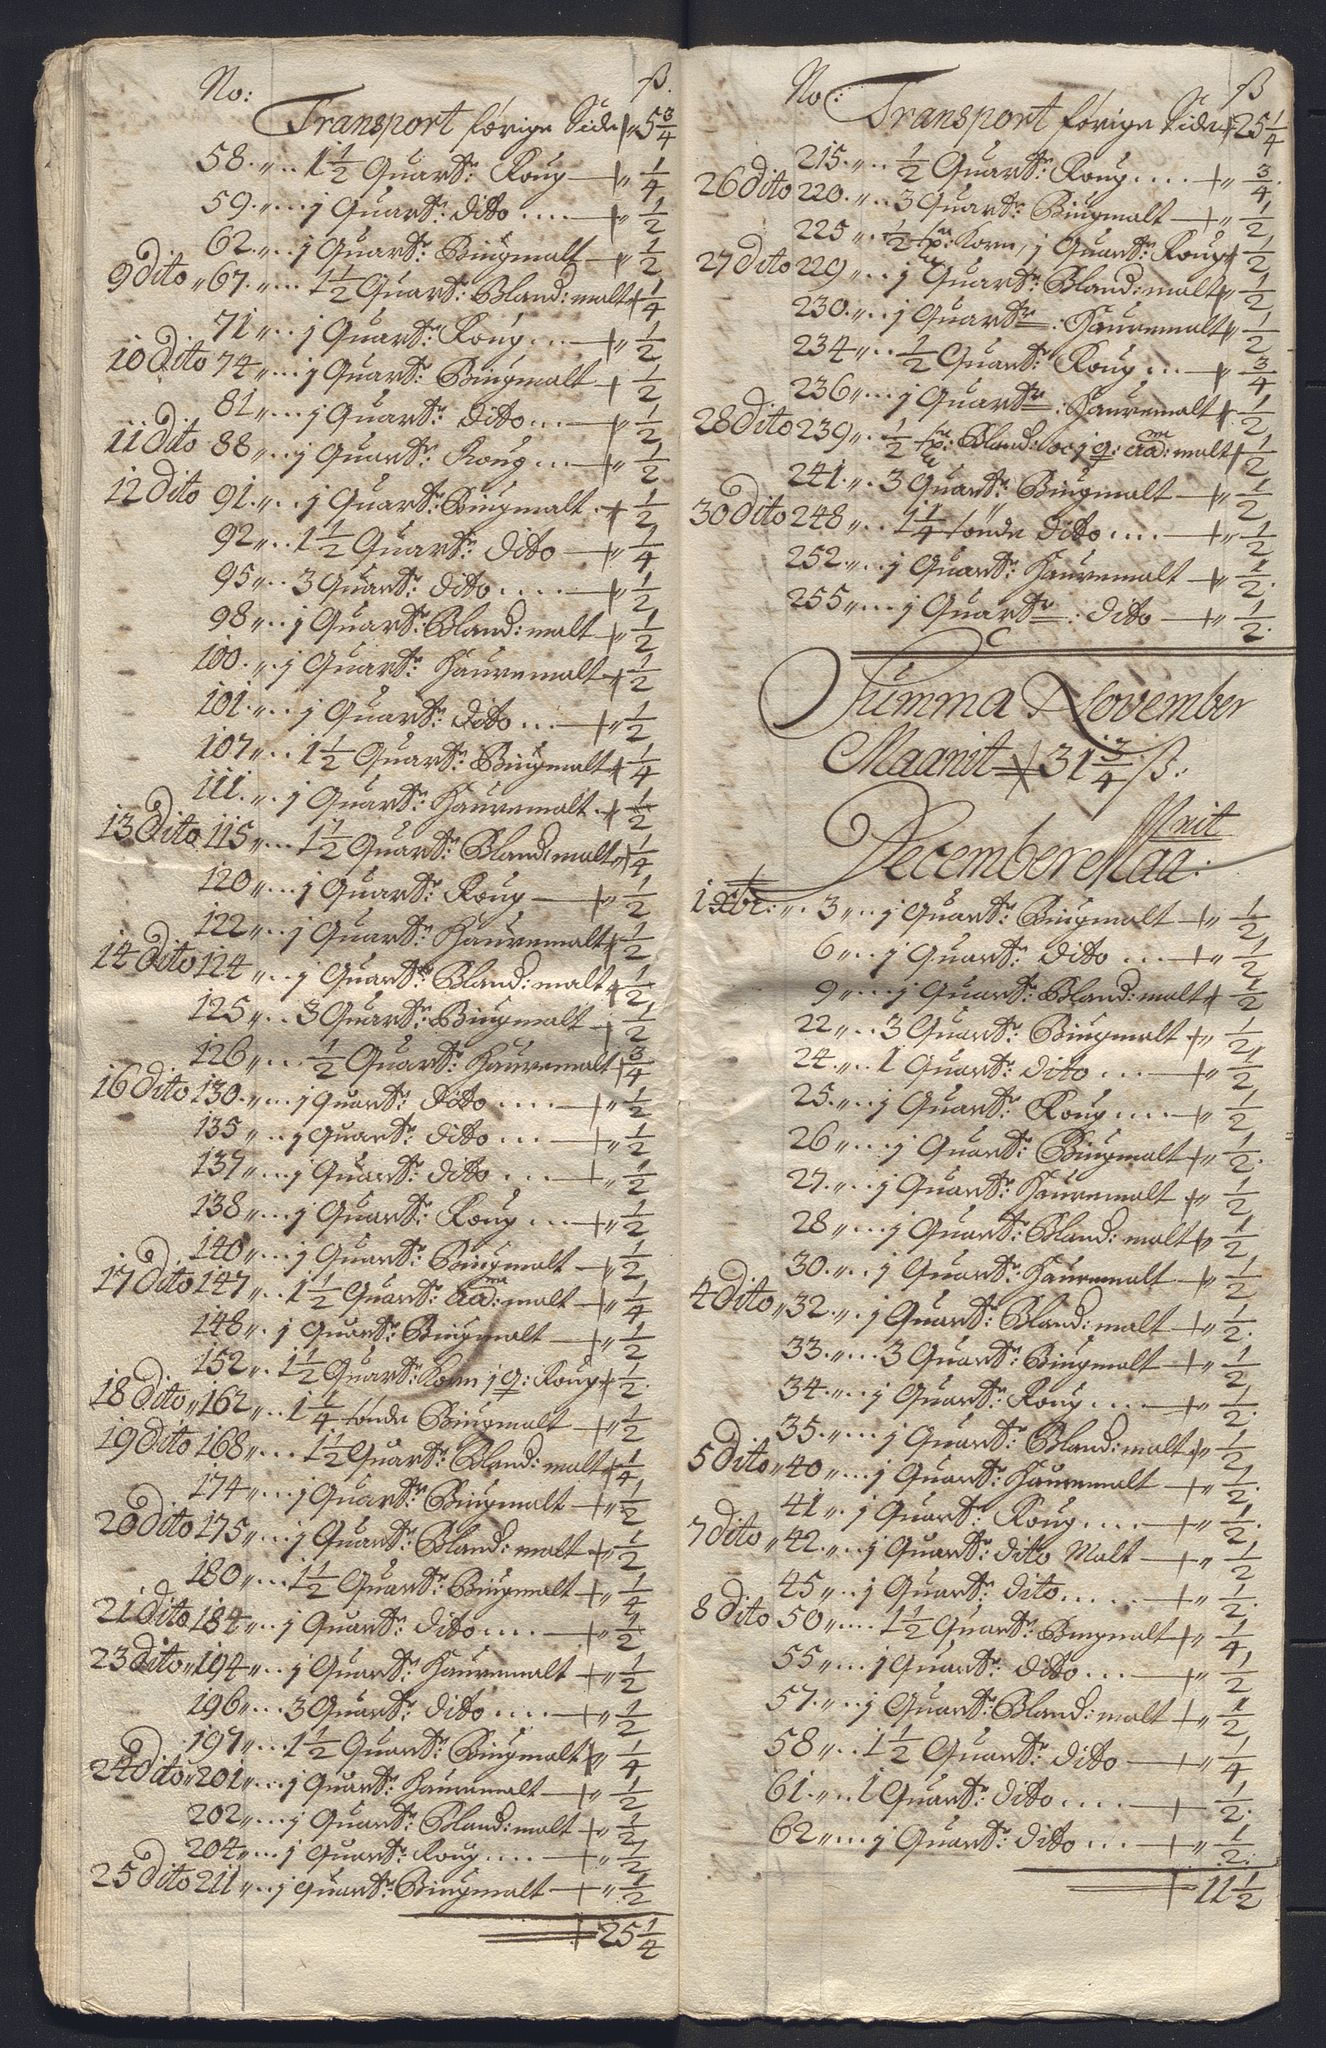 No: ß.
Transport forige Side „ 5 3/4
58 „ .. 1 1/2 Quart: Roug — „ 1/4
59 „ ... j Quart: dito .... „ 1/2
62 „ .. j Quart: Biugmalt — „ 1/2
9 dito „ 67 „ ... 1 1/2 Quart: Bland: malt „ 1/4
71 „ .. j Quart: Roug ... „ 1/2
10 dito 74 „ ... j Quart: Biugmalt „ 1/2
81 „ ... j Quart: dito ... „ 1/2
11 dito 88 „ ... j Quart: Roug ... „ 1/2
12 dito 91 „ ... j Quart: Biugmalt . „ 1/2
92 „ .. 1 1/2 Quart: dito — „ 1/4
95 „ .. 3 Quart: dito .... „ 1/2
98 „ .. j Quart: Bland: malt „ 1/2
100 „ . j Quart: Haufremalt „ 1/2
101 „ ... j Quart: dito ... „ 1/2
107 „ .. 1 1/2 Quart: Biugmalt „ 1/4
111 „ .. j Quart: Haufremalt . „ 1/2
13 dito 115 „ ... 1 1/2 Quart: Bland: malt „ 1/4
120 „ ... j Quart: Roug — „ 1/2
122 „ ... j Quart: Haufremalt „ 1/2
14 dito 124 „ ... j Quart: Bland: malt „ 1/2
125 „ ... 3 Quart: Biugmalt „ 1/2
126 „ ... 1/2 Quart: Haufremalt „ 3/4
16 dito 130 „ ... j Quart: dito .... „ 1/2
135 „ .. j Quart: dito ... „ 1/2
137 „ ... j Quart: dito ... „ 1/2
138 „ ... j Quart: Roug ... „ 1/2
140 „ ... j Quart: Biugmalt — „ 1/2
17 dito 147 „ .. 1 1/2 Quart: malt — „ 1/4
148 „ . j Quart: Biugmalt — „ 1/2
152 „ . 1 1/2 Quart: Korn j Q: Roug „ 1/2
18 dito „ 162 „ .. 1 1/4 tønde Biugmalt — „ 1/2
19 dito 168 „ ... 1 1/2 Quart: Bland: malt „ 1/4
174 „ ... j Quart: Biugmalt — „ 1/2
20 dito 175 „ ... j Quart: Bland: malt „ 1/2
180 „ ... 1 1/2 Quart: Biugmalt „ 1/4
21 dito 184 „ .. j Quart: dito .... „ 1/2
23 dito „ 194 „ .. j Quart: Haufremalt „ 1/2
196 „ ... 3 Quart: dito .... „ 1/2
197 „ ... 1 1/2 Quart: Biugmalt „ 1/4
24 dito „ 201 „ ... j Quart: Haufremalt — „ 1/2
202 „ ... j Quart: Bland: malt „ 1/2
204 „ ... j Quart: Roug .... „ 1/2
25 dito 211 „ ... j Quart: Biugmalt — „ 1/2
25 1/4
No: ß
Transport forige Side 25 1/4
215 „ .. 1/2 Quart: Roug .... „ 3/4
26 dito 220 „ .. 3 Quart: Biugmalt — „ 1/2
225 „ . 1/2 Korn, j Quart: Roug „ 1/2
27 dito 229 „ ... j Quart: Bland: malt „ 1/2
230 „ .. j Quart: Haufremalt „ 1/2
234 „ .. 1/2 Quart: Roug ... „ 3/4
236 „ ... j Quart: Haufremalt „ 1/2
28 dito 239 „ . 1/2 Bland: oc j Q: malt „ 1/2
241 „ . 3 Quart: Biugmalt — „ 1/2
30 dito 248 „ .. 1 1/4 tønde dito .... „ 1/2
252 „ ... j Quart: Haufremalt „ 1/2
255 „ ... j Quart: dito — „ 1/2
Summa November
Maanit 31 3/4 ß:
December Maa:nit
1 xbr: „ . 3 „ .. j Quart: Biugmalt „ 1/2
6 „ ... j Quart: dito ... „ 1/2
9 „ ... j Quart: Bland: malt „ 1/2
22 „ .. 3 Quart: Biugmalt „ 1/2
24 „ .. 1 Quart: dito ... „ 1/2
25 „ .. j Quart: Roug .... „ 1/2
26 „ ... j Quart: Biugmalt „ 1/2
27 „ ... j Quart: Haufremalt „ 1/2
28 „ ... j Quart: Bland: malt „ 1/2
30 „ .. j Quart: Haufremalt „ 1/2
4 dito „ 32 „ .. j Quart: Bland: malt „ 1/2
33 „ ... 3 Quart: Biugmalt „ 1/2
34 „ ... j Quart: Roug .... „ 1/2
35 „ ... j Quart: Bland: malt „ 1/2
5 dito „ 40 „ ... j Quart: Haufremalt „ 1/2
41 „ . j Quart: Roug .... „ 1/2
7 dito „ 42 „ ... j Quart: dito Malt — „ 1/2
45 „ .. j Quart: dito ..... „ 1/2
8 dito 50 „ .... 1 1/2 Quart: Biugmalt „ 1/4
55 „ ... j Quart: dito ... „ 1/2
57 „ ... j Quart: Bland: malt „ 1/2
58 „ .. 1 1/2 Quart: dito — „ 1/4
61 „ .. 1 Quart: dito .... 1/2
62 „ ... j Quart: dito ... „ 1/2
11 1/2